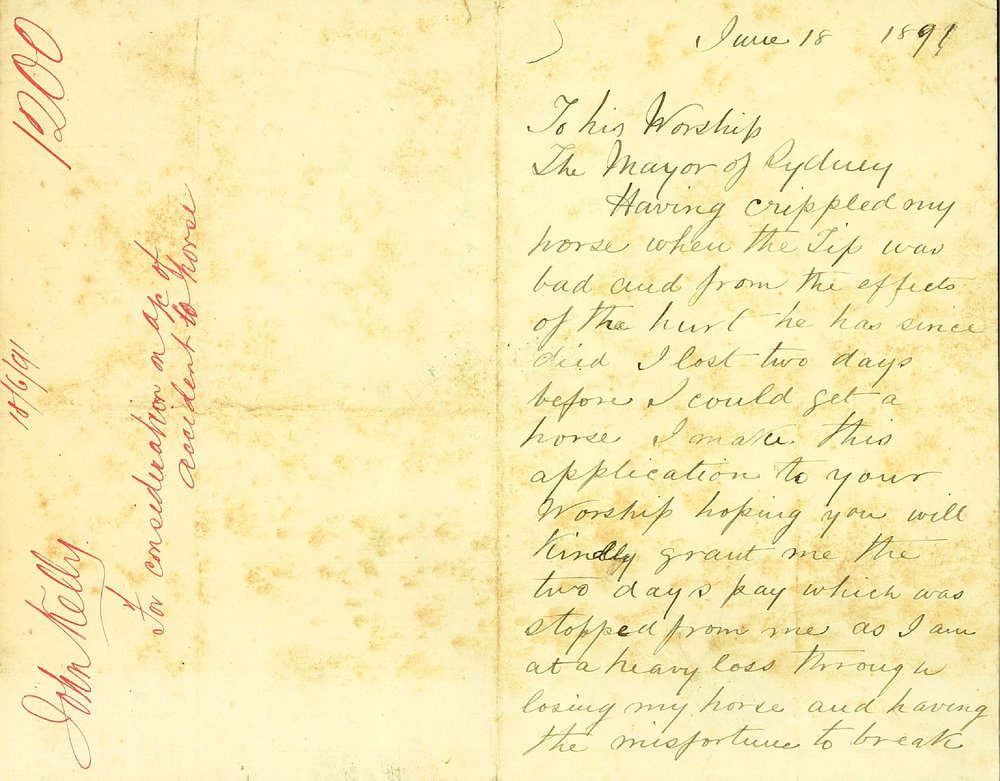 1200
18/6/91
John Kelly
For consideration on a/c of
accident to horse
June 18 1891
To his Worship
The Mayor of Sydney
Having crippled my
horse when the Tip was
bad and from the effects
of the hurt he has since
died I lost two days
before I could get a
horse I make this
application to your
Worship hoping you will
Kindly grant me the
two days pay which was
stopped from me as I am
at a heavy loss through
losing my horse and having
the misfortune to break